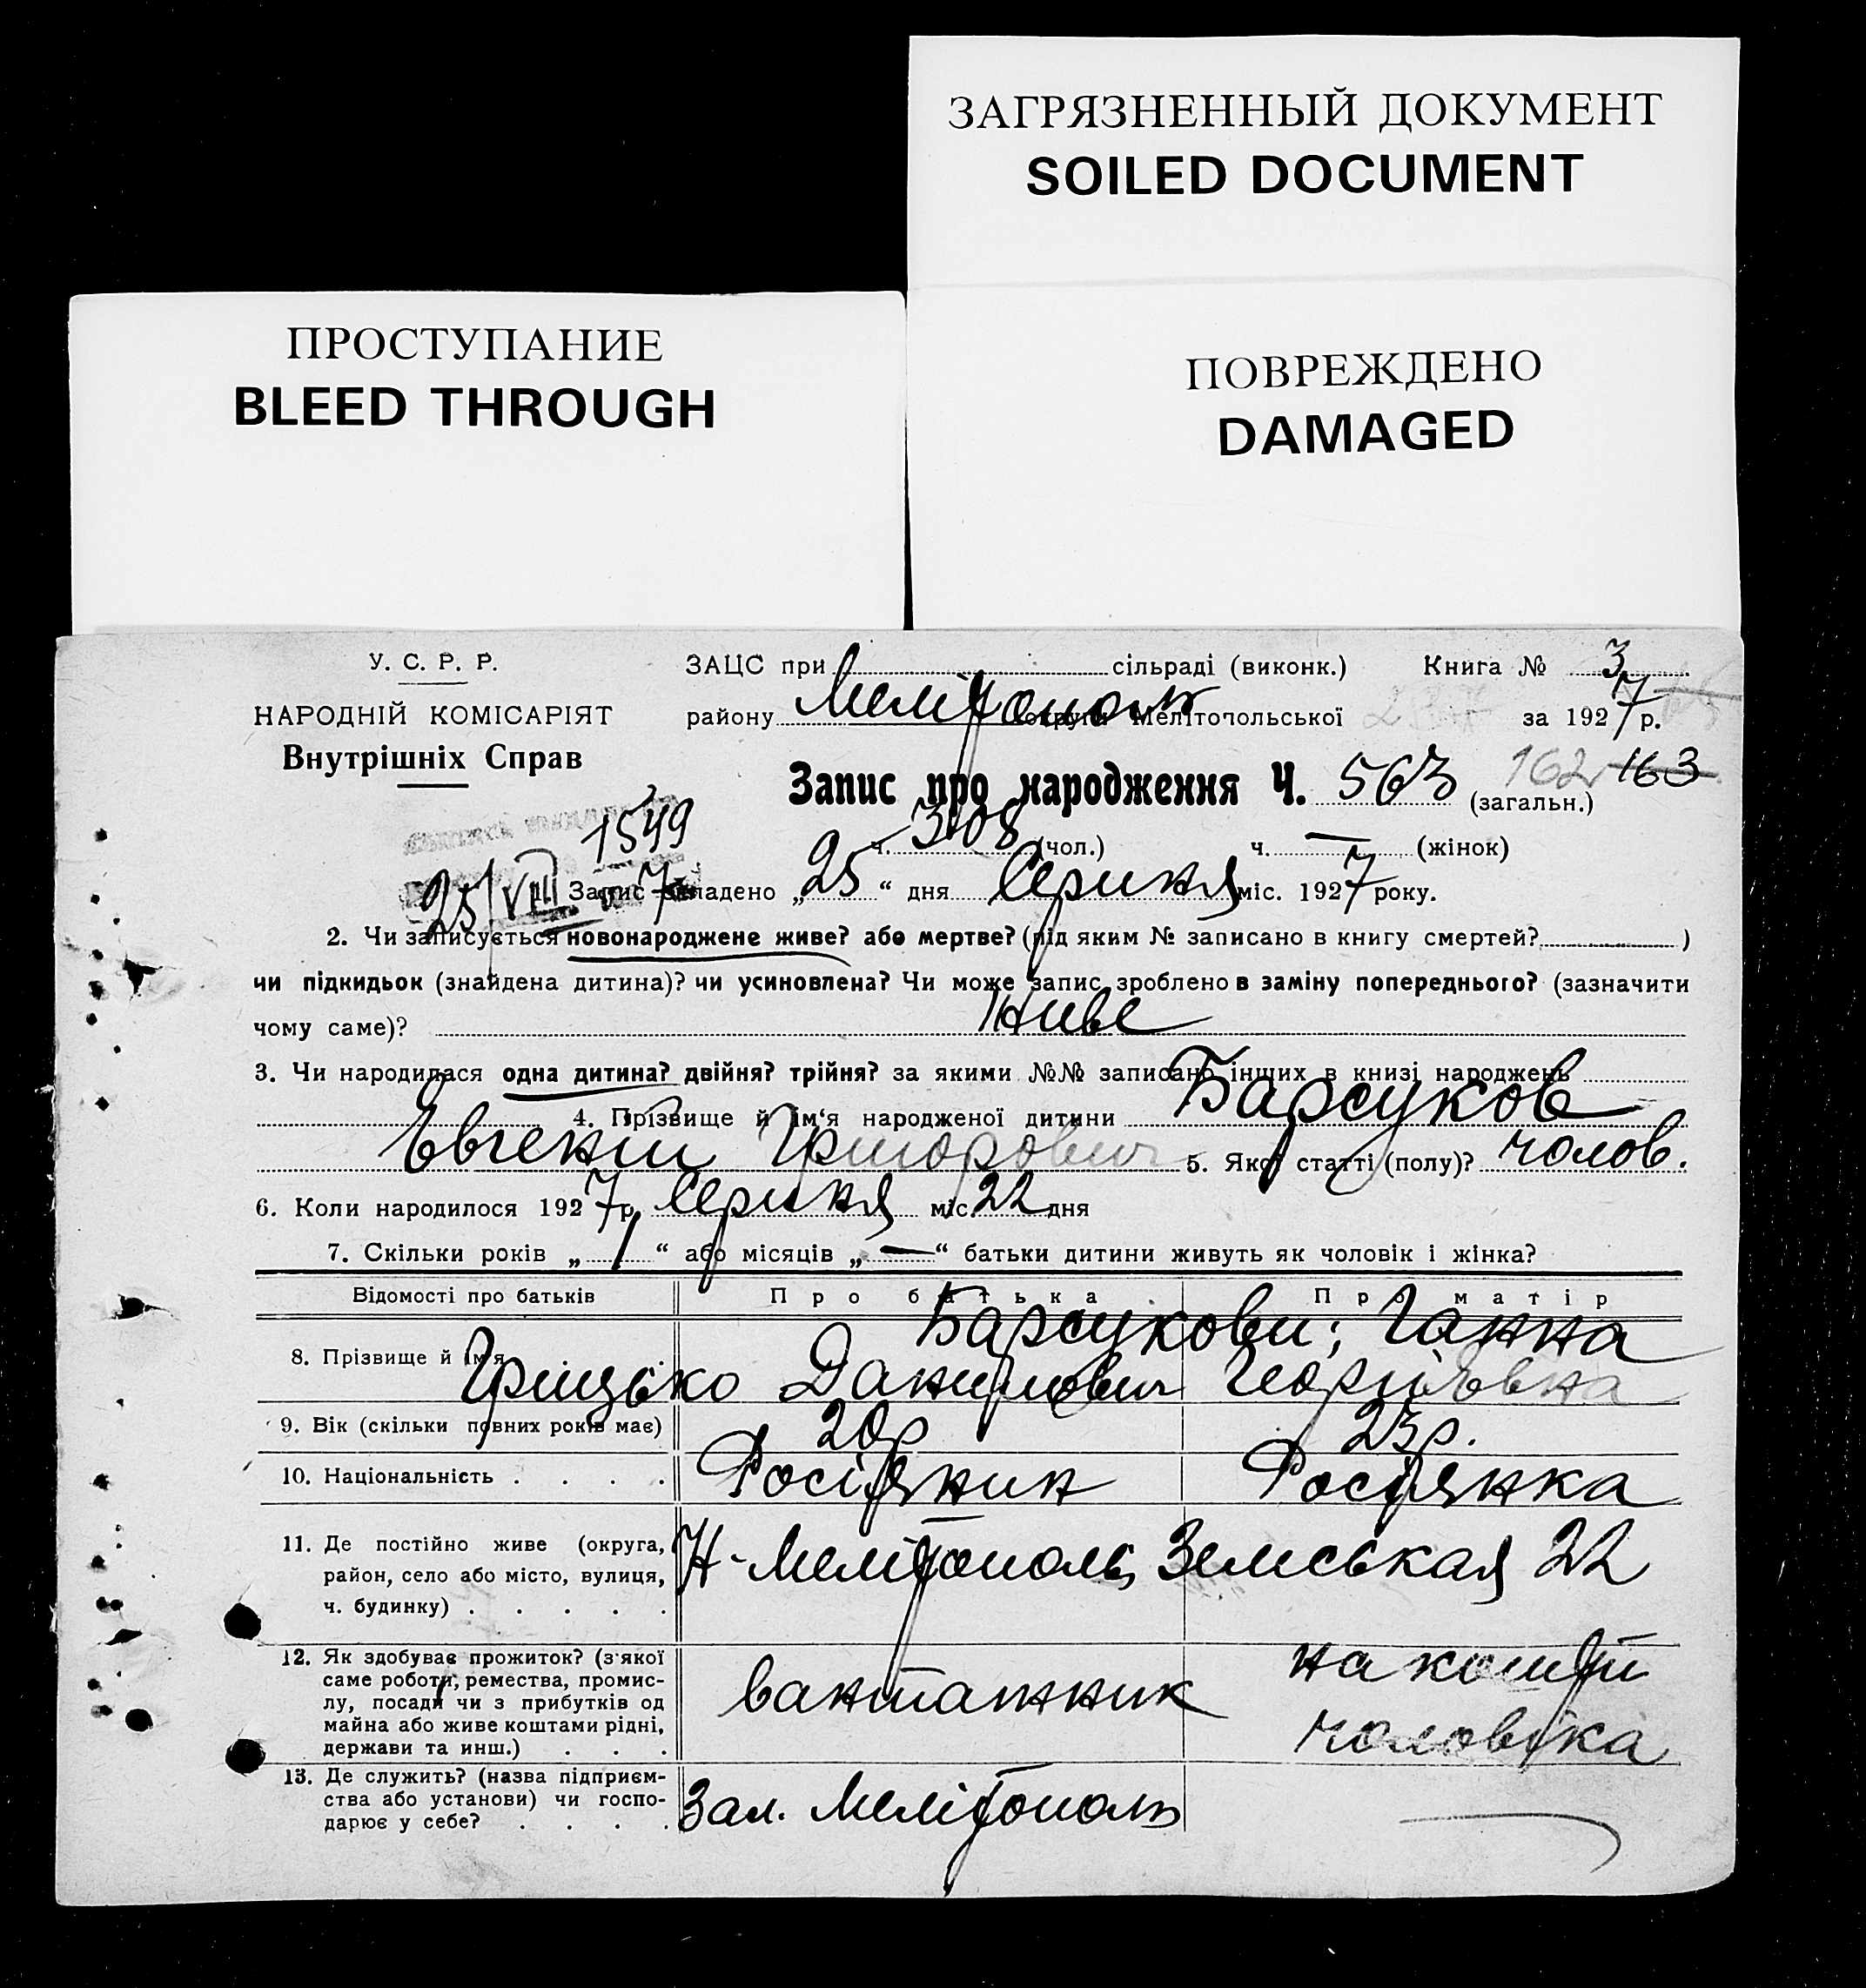 ЗАГРЯЗНЕННЫЙ ДОКУМЕНТ
SOILED DOCUMENT
ПРОСТУПАНИЕ
BLEED THROUGH
ПОВРЕЖДЕНО
DAMAGED
У. С. Р. Р.
НАРОДНІЙ КОМІСАРІЯТ
Внутрішніх Справ
ЗАЦС при сільраді (виконк.) Книга № 3
району Мелітополь округи Мелітопольської за 1927 р.
Запис про народження Ч. 563 (загальн.) 162 163
1549
ч. 308 (чол.) ч. — (жінок)
25/VIII 7
Запис складено „25“ дня Серпня міс. 1927 року.
2. Чи записується новонароджене живе? або мертве? (під яким № записано в книгу смертей? )
чи підкидьок (знайдена дитина)? чи усиновлена? Чи може запис зроблено в заміну попереднього? (зазначити
чому саме)? Живе
3. Чи народилася одна дитина? двійня? трійня? за якими №№ записано інших в книзі народжень
4. Прізвище й ім‘я народженої дитини Барсуков
Евгений Григорович 5. Якої статті (полу)? чолов.
6. Коли народилося 1927 р. Серпня міс. 22 дня
7. Скільки років „1“ або місяців „—“ батьки дитини живуть як чоловік і жінка?
Відомості про батьків Про батька Про матір
8. Прізвище й ім‘я Барсукови; Ганна
Грицько Данилович Георгіївна
9. Вік (скільки повних років має) 20р 23р.
10. Національність . . . . Росіянин Росіянка
11. Де постійно живе (округа,
район, село або місто, вулиця,
ч. будинку) . . . . .
Н-Мелітополь, Земськая 22
12. Як здобуває прожиток? (з‘якої
саме роботи, ремества, промис-
лу, посади чи з прибутків од
майна або живе коштами рідні,
держави та инш.) . . .
вантажник
на кошти
чоловіка
13. Де служить? (назва підприєм-
ства або установи) чи госпо-
дарює у себе? . . . .
Зал. Мелітополь